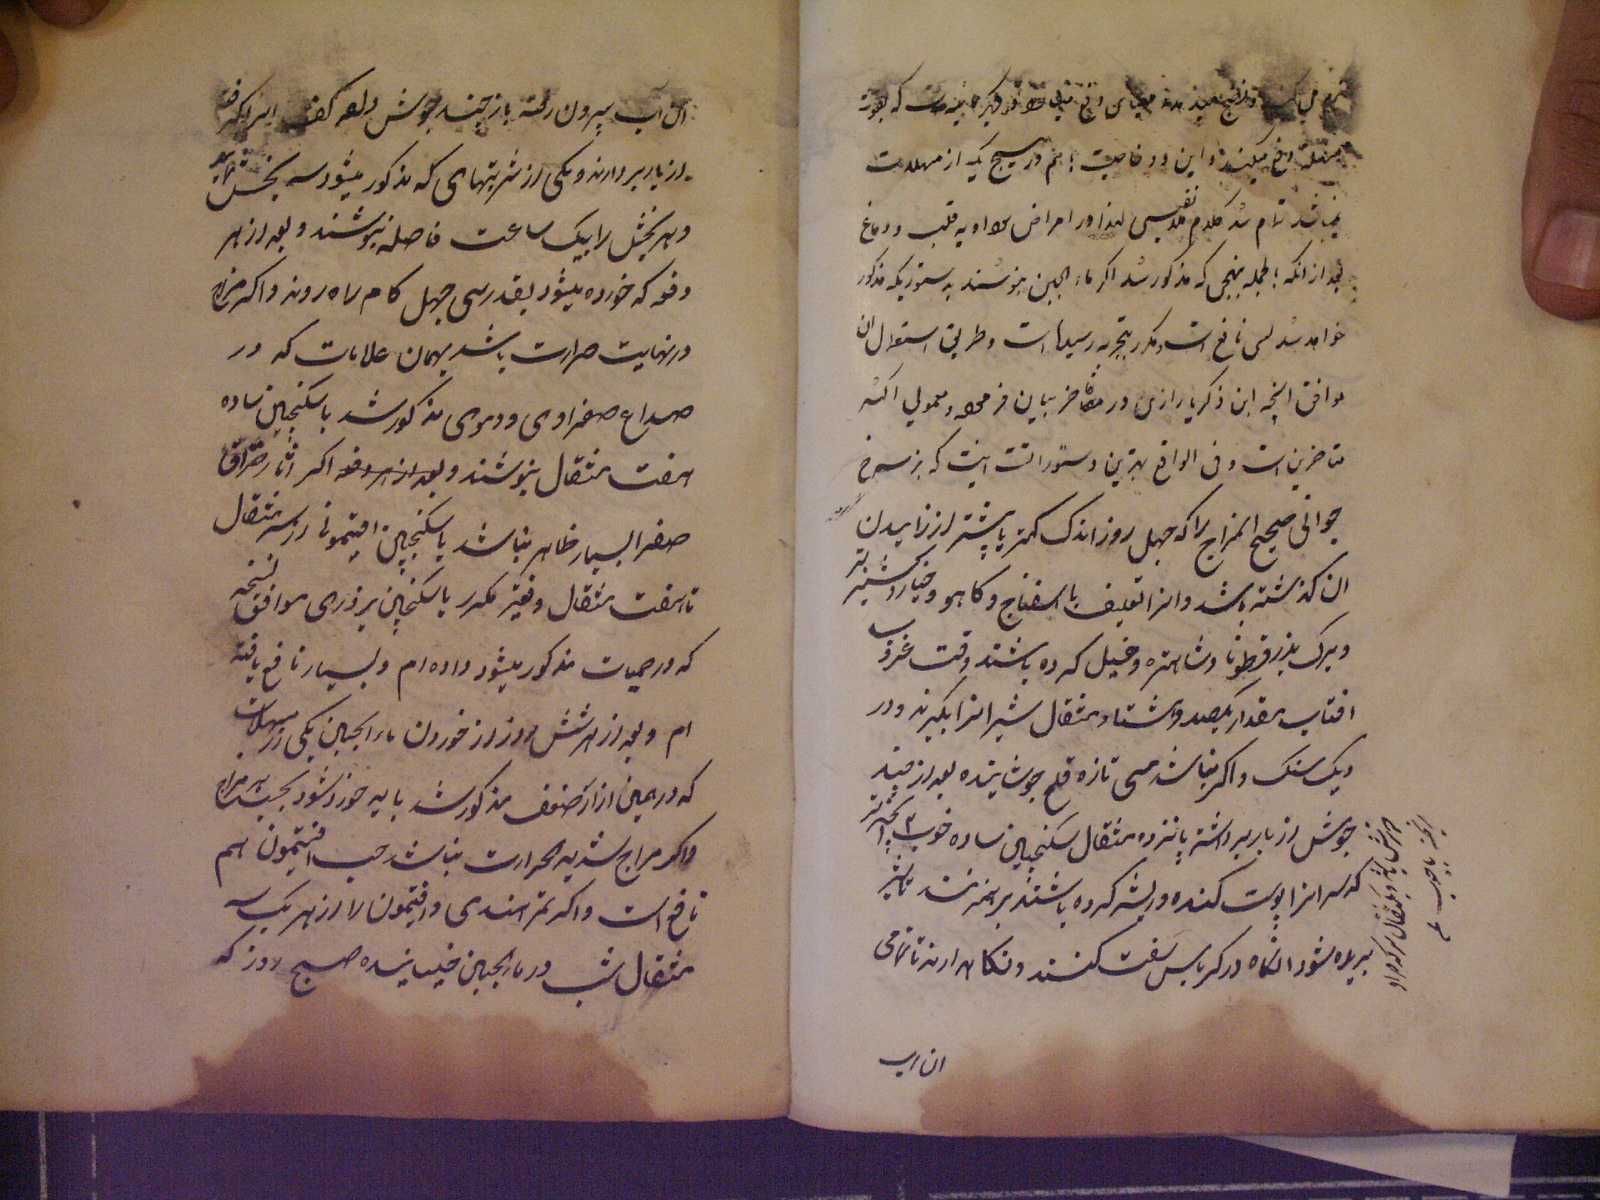 منفعت دفع میکند و این دو خاصیت با هم در هیچ یک از مسهلات
نمیباشد تمام شد کلام علا نفیس لهذا در امراض سوداویه قلب و دماغ
بعد از انکه بالجمله بنهجی که مذکور شد اکر ماء الجبن بنوشند بدستوریکه مذکور
خواهد شد بسی نافع است و مکرر بتجربه رسیده است و طریق استعمال ان
موافق انچه ابن ذکریا رازی در مفاخر بیان فرموده و معمولی اکثر
متاخرین است و فی الواقع بهترین دستور انست اینست که بز سرخ
جوانی صحیح المزاج را که چهل روز اندک کمتر یا بیشتر از زائیدن
ان کذشته باشد و انرا تعلیف با اسفناج و کاهو و خیار و کشنیز تر
و برک بذر قطونا و شاهتره و خیل کرده باشند وقت غروب
افتاب بمقدار یکصد و هشتاد مثقال شیر انرا بکیرند و در
دیک سنک و اکر نباشد مسی تازه قلع جوشانیده بعد از چند
جوش از بار برداشته پانزده مثقال سکنجبین ساده خوب
که سر انرا پوست کنده و ریشه کرده باشند برهم زنند تا شیر
بریده شود انکاه در کرباس سفت کنند و نکاه دارند تا تمامی
ان اب
ان اب بیرون رفته باز چند جوش داده کف انرا کرفته
از بار بردارند و یکی از شربتهای که مذکور میشود سه بخش نمایند
و هر بخش را بیک ساعت فاصله بنوشند و بعد از هر
دفعه که خورده میشود بقدر سی چهل کام راه روند و اکر مزاج
در نهایت حرارت باشد بهمان علامات که در
صداع صفراوی و دموی مذکور شد با سکنجبین ساده
هفت مثقال بنوشند و بعد از هر دفعه اکر اثار احتراق
صفرا بسیار ظاهر نباشد با سکنجبین افتیمونی از سه مثقال
تا هفت مثقال و فقیر مکرر با سکنجبین بزوری موافق نسخه
که در حمیات مذکور میشود داده ام و بسیار نافع یافته
ام و بعد از هر شش روز از خوردن ماء الجبن یکی از مسهلات
که در همین ازاء صنف مذکور شد باید خورد شود بحسب مزاج
و اکر مزاج شدید الحرارت نباشد حب افتیمون هم
نافع است و اکر تمر هندی و افتیمون را از هر یک سه
مثقال شب در ماء الجبن خیسانیده صبح روز که